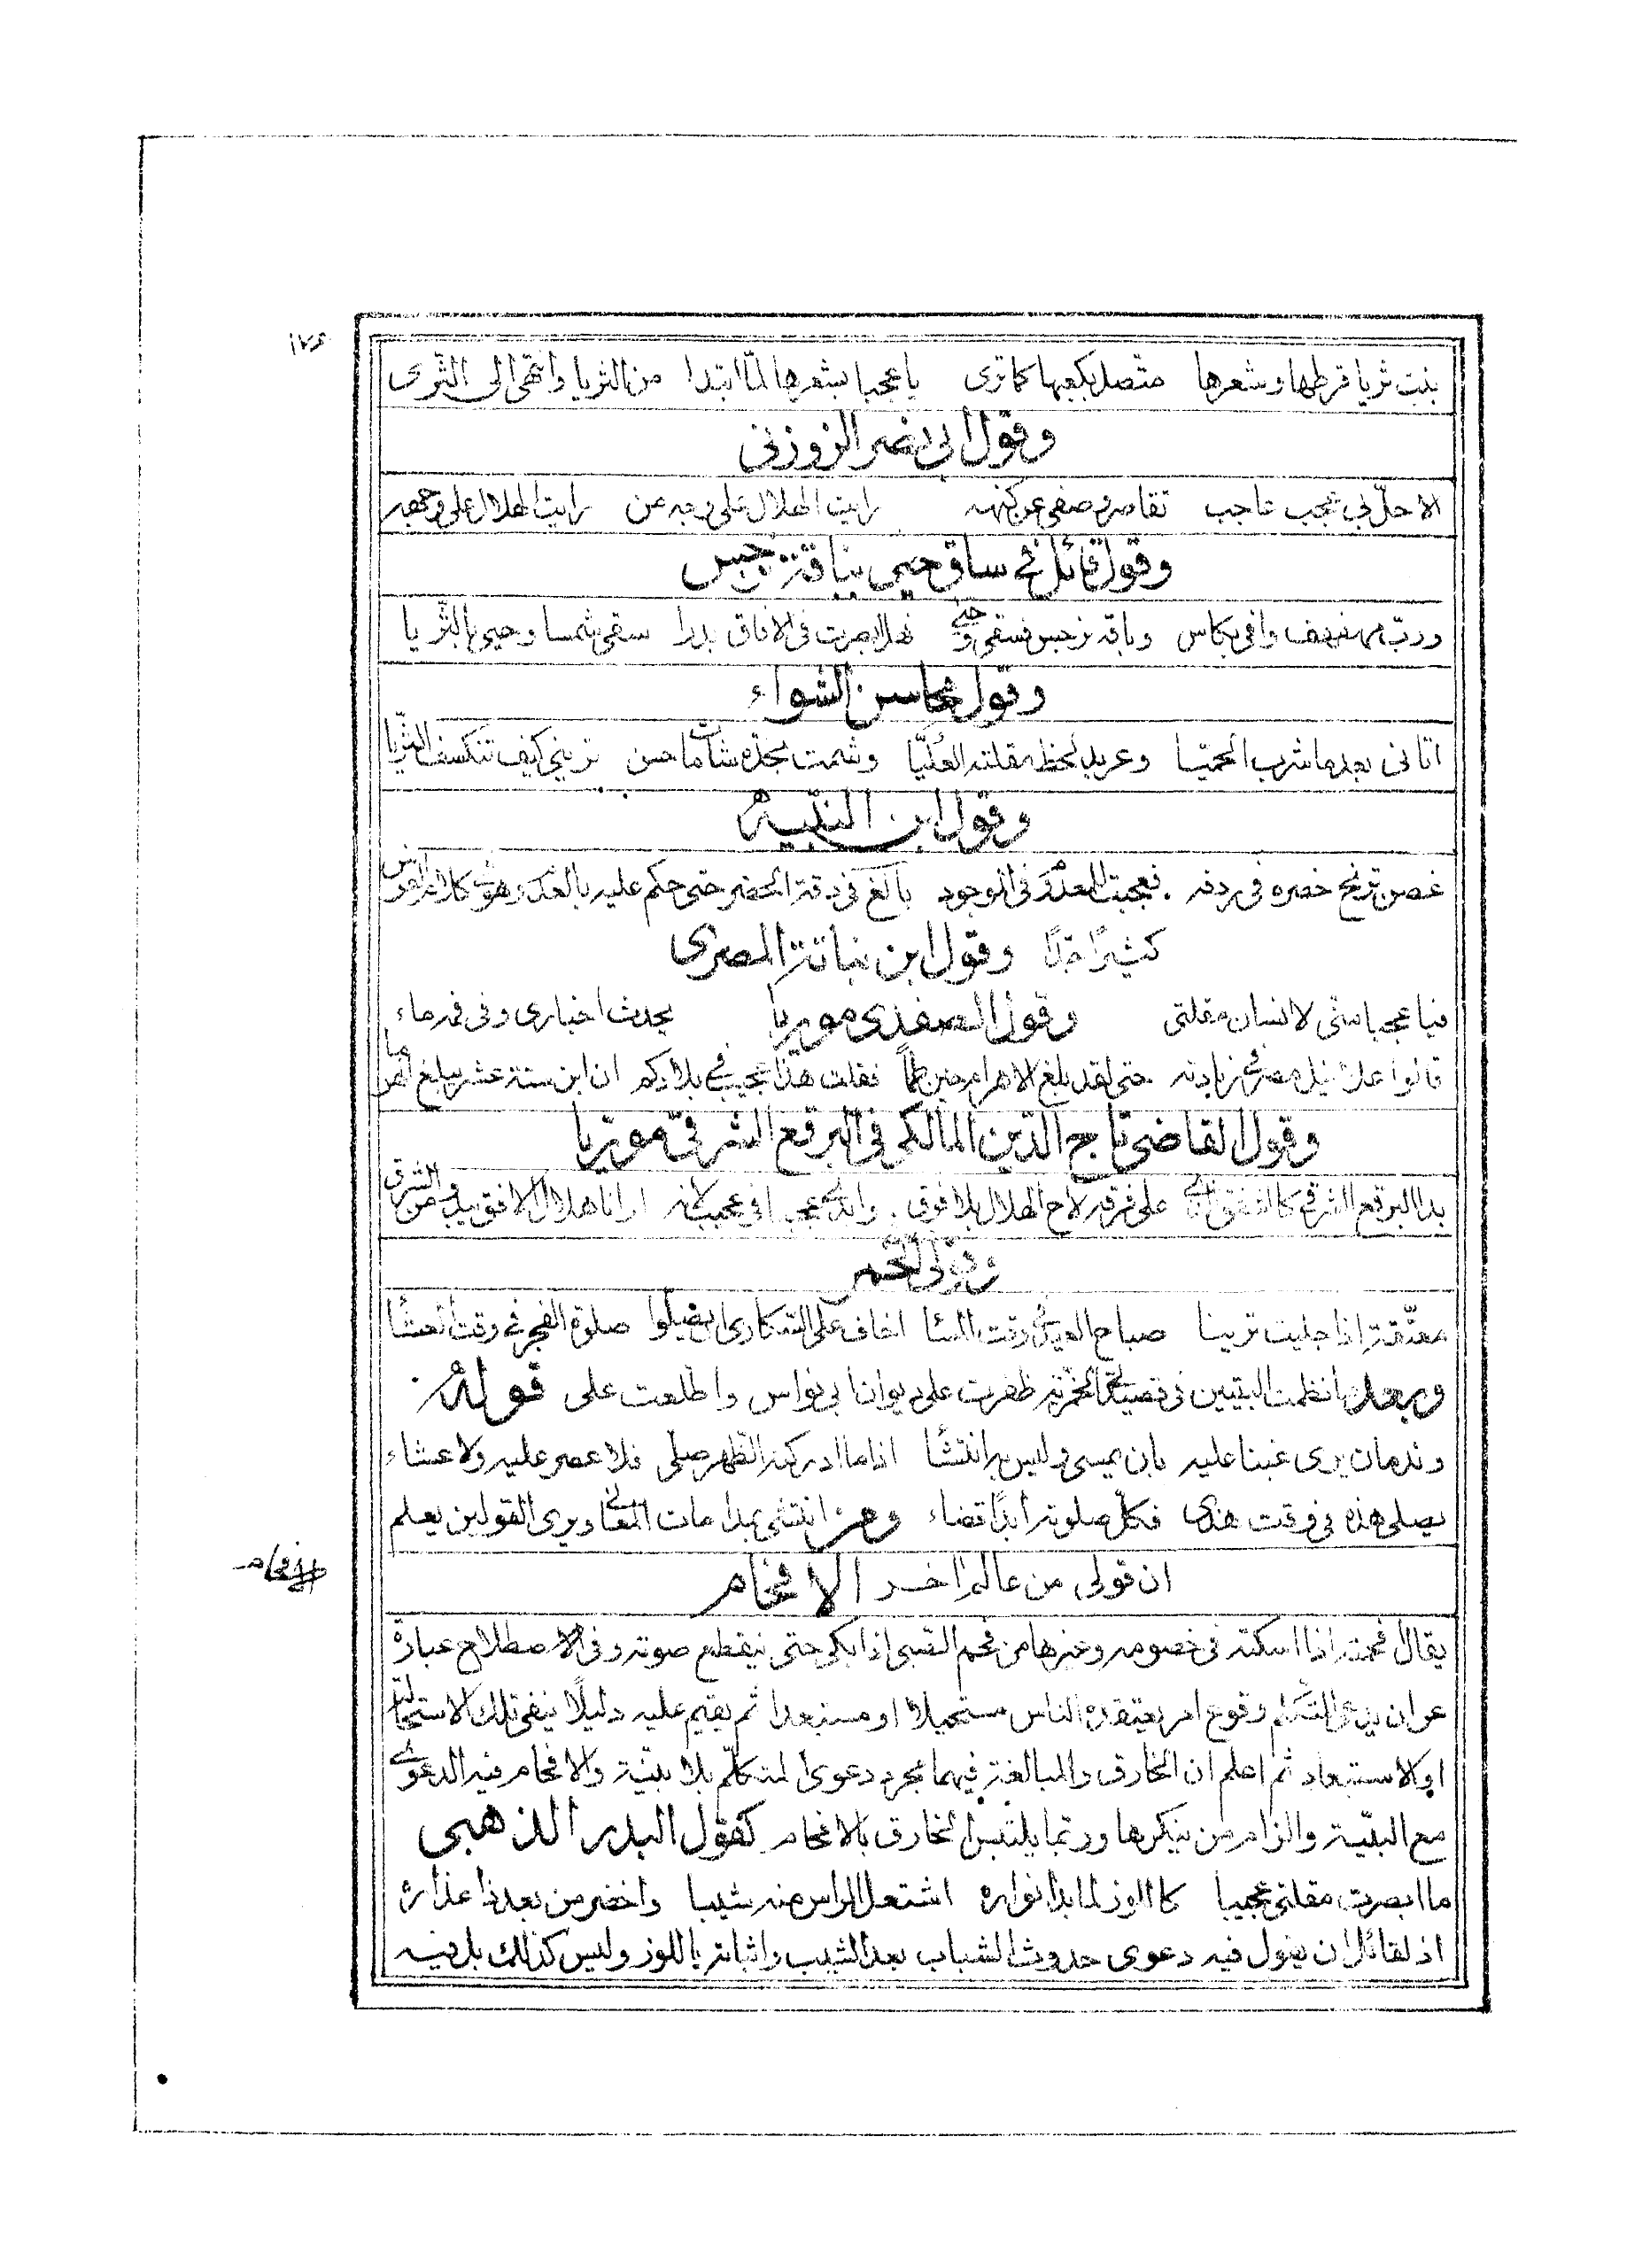 ١٧٤
بنت ثريا قرطها وشعرها متصل بكعبها كما ترى يا عجبا بشعرها لما ابتدا من الثريا وانتهى الى الثرى
وقول ابي نصر الزوزني
الا حلّ بي عجب عاجب تقاصر وصفي عن كنهه رايت الهلال على وجه من رايت الهلال على وجهه
وقول قائل في ساق حيى بباقة نرجس
وربّ مهفهف وافى بكاس وباقة نرجس فسقى وحيّى فهل ابصرت في الافاق بدرا سقى شمسا وحيى بالثّريا
وقول محاسن الشواء
اتاني بعدما شرب الحميّا وعربد لحظ مقلته العليّا وشمت بخدّه شامات حسن تريني كيف تنكسف الثّريّا
وقول ابن النبيه
غصن ترنح خصره في ردفه فعجبت للمعدوم في الوجود بالغ في دقة الخصر حتى حكم عليه بالعدم وهو في كلام الفرس
كثيرًا جدًا وقول ابن نباتة المصرى
فيا عجبا منى لانسان مقلتي وقول الصفدى موريا يحدث اخبارى وفى فمه ماء
قالوا علا نيل مصر في زيادته حتى لقد بلغ الاهرام حين طما فقلت هذا عجيب في بلادكم ان ابن ستة عشر يبلغ الهرما
وقول القاضي تاج الدّين المالكي في البرقع الشرقي موريا
بدا البرقع الشرقي كالشفق على فرقه لاح الهلال بلا فرق عجب ارانا هلال الافق يبدو من الشرق
وقولي في الخمر
معتّقة اذا جليت ترينا صباح العيد في وقت المسا اخاف على السكارى ان يصلّوا صلوة الفجر في وقت العشا
وبعد ما نظمت البيتين في قصيدتي الخمرية ظفرت على ديوان ابي نواس واطلعت على قوله
وندمان يرى غبنا عليه بان يمسي وليس به انتشا اذا ما ادركته الظهر صلّى فلا عصر عليه ولا عشاء
يصلى هذه في وقت هذى فكلّ صلوته ابدًا قضاء ومن انتشى بمدامات المعاني ويرى القولين يعلم
ان قولي من عالم اخر الافحام
الافحام
يقال فحمته اذا اسكته في خصومه وغيرها من فحم الصبى اذا بكى حتى ينقطع صوته وفى الاصطلاح عبارة
عن ان يدعى المتكلم وقوع امر يعتقده الناس مستحيلا او مستبعدا ثم يقيم عليه دليلًا ينفى تلك الاستحالة
او الاستبعاد ثم اعلم ان الخارق والمبالغة فيهما مجرد دعوى المتكلّم بلا بيّنة والافحام فيه الدعوى
مع البيّنة والزام من ينكرها وربّما يلتبس الخارق بالافحام كقول البدر الذهبي
ما ابصرت مقلتي عجيبا كاللوز لما بدا نواره اشتعل الراس منه شيبا واخضر من بعد ذا عذاره
اذ لقائل ان يقول فيه دعوى حدوث الشباب بعد الشيب واثباته باللوز وليس كذلك بل فيه